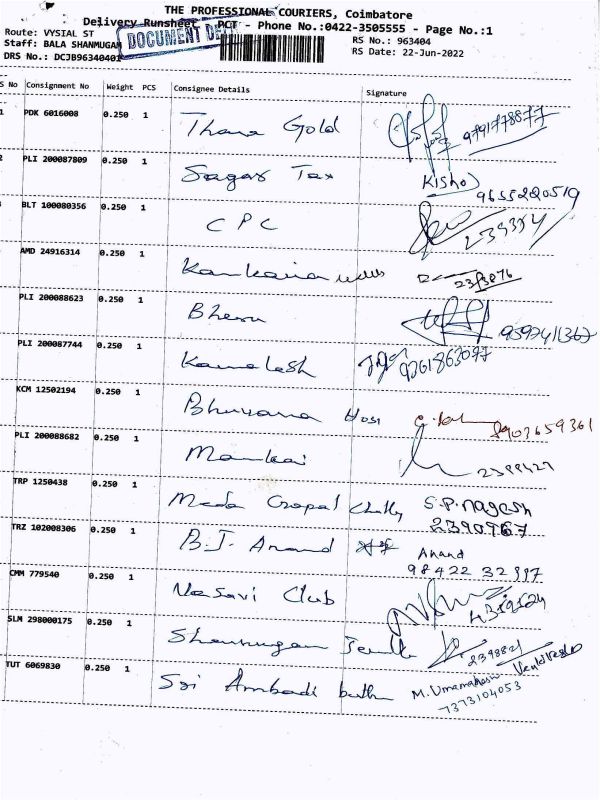 THE PROFESSIONAL COURIERS, Coimbatore
Delivery Runsheet PCT - Phone No.:0422-3505555 - Page No.:1
Route: VYSIAL ST
RS No.: 963404
Staff: BALA SHANMUGAM
DOCUMENT
RS Date: 22-Jun-2022
DRS No.: DCJB96340401
S No Consignment No Weight PCS Consignee Details Signature
1 PDK 6016008 0.250 1 Thana Gold 9791778877
2 PLI 200087809 0.250 1 Sagar Tax Kishor 9655220519
BLT 100080356 0.250 1 CPC
AMD 24916314 0.250 1 Kankaria
PLI 200088623 0.250 1 Bheru
PLI 200087744 0.250 1 Kamalesh 9361863077
KCM 12502194 0.250 1 Bhuvana Hosi 8903659361
PLI 200088682 0.250 1 Mankai
TRP 1250438 0.250 1 Mada Gopal Chetty S.P. Nagesh
2390967
TRZ 102008306 0.250 1 B.J. Anand Anand
98422 32997
CMM 779540 0.250 1 Vasavi Club
SLM 298000175 0.250 1 Shanmugam 2398821 Venkatesh
TUT 6069830 0.250 1 Sri Ambadi M. Umamaheswari
7373104053